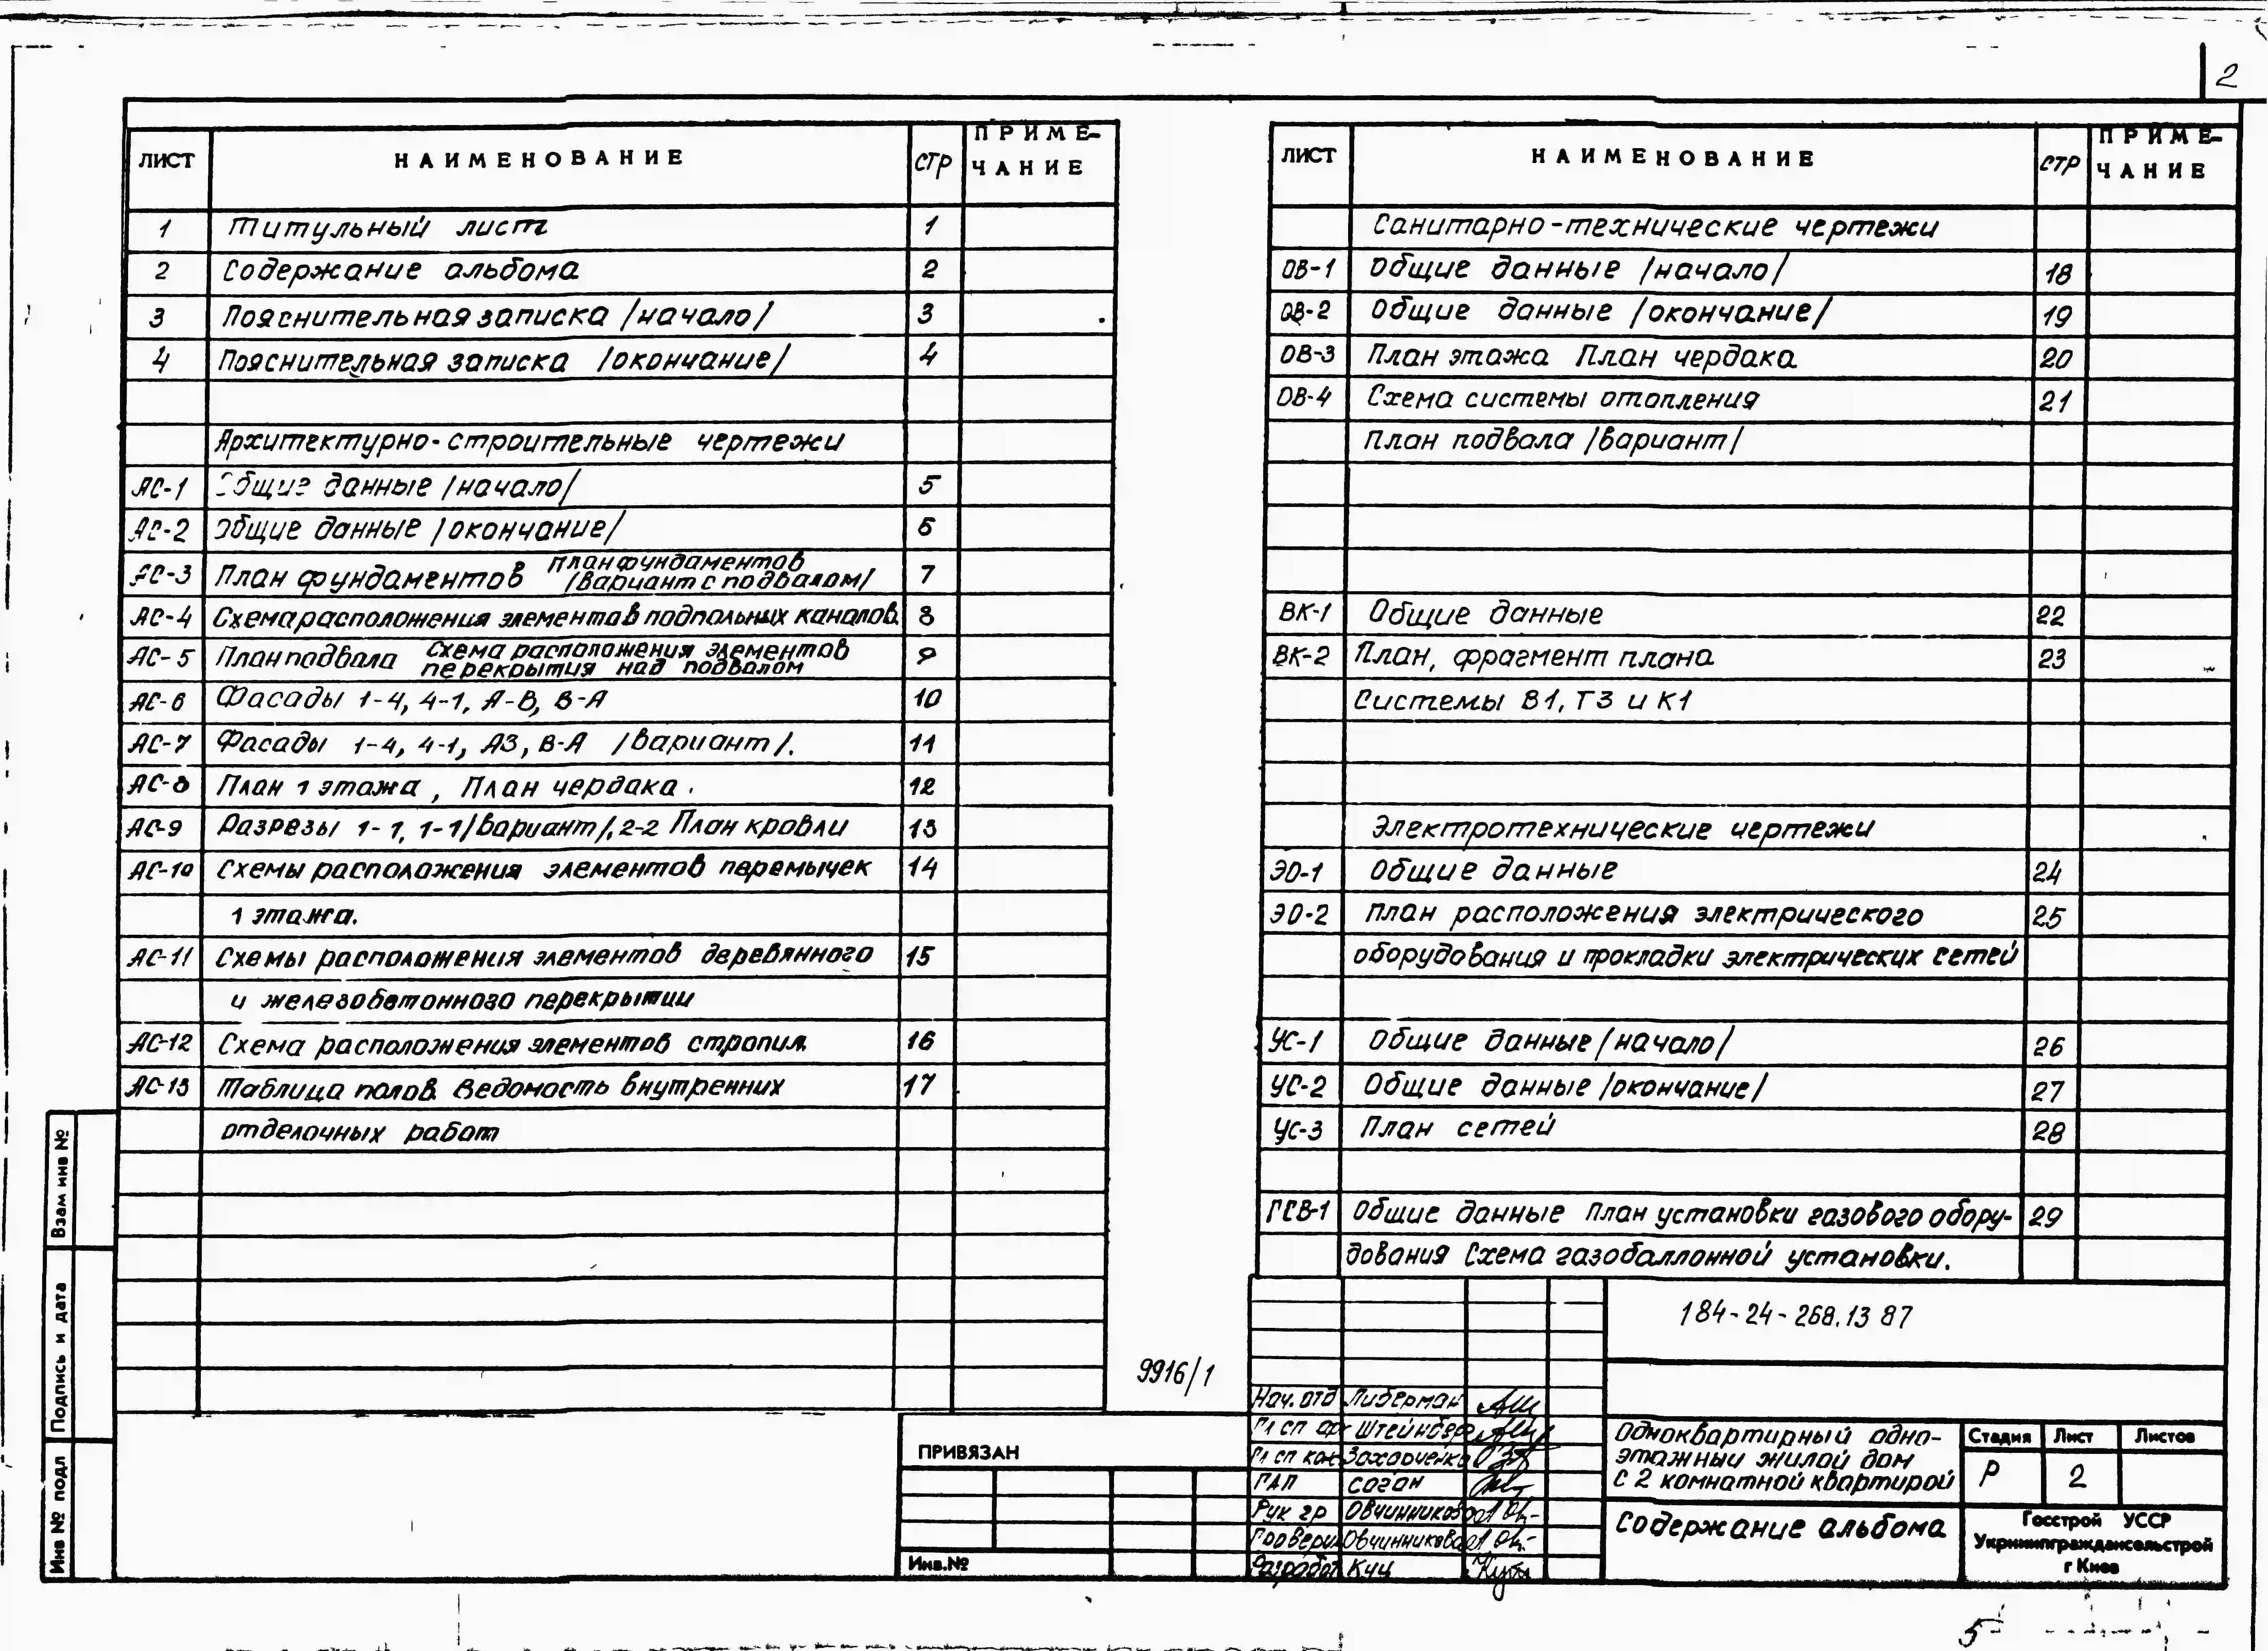 2
ЛИСТ НАИМЕНОВАНИЕ СТР ПРИМЕ-
ЧАНИЕ
1 Титульный лист 1
2 Содержание альбома 2
3 Пояснительная записка /начало/ 3
4 Пояснительная записка /окончание/ 4
Архитектурно-строительные чертежи
АС-1 Общие данные /начало/ 5
АС-2 Общие данные /окончание/ 6
АС-3 План фундаментов План фундаментов /вариант с подвалом/ 7
АС-4 Схема расположения элементов подпольных каналов. 8
АС-5 План подвала Схема расположения элементов перекрытия над подвалом 9
АС-6 Фасады 1-4, 4-1, А-В, В-А 10
АС-7 Фасады 1-4, 4-1, АЗ, В-А /вариант/. 11
АС-8 План 1 этажа, План чердака. 12
АС-9 Разрезы 1-1, 1-1/вариант/, 2-2 План кровли 13
АС-10 Схемы расположения элементов перемычек 14
1 этажа.
АС-11 Схемы расположения элементов деревянного 15
и железобетонного перекрытии
АС-12 Схема расположения элементов стропил. 16
АС-13 Таблица полов. Ведомость внутренних 17
отделочных работ
ЛИСТ НАИМЕНОВАНИЕ СТР ПРИМЕ-
ЧАНИЕ
Санитарно-технические чертежи
ОВ-1 Общие данные /начало/ 18
ОВ-2 Общие данные /окончание/ 19
ОВ-3 План этажа План чердака 20
ОВ-4 Схема системы отопления 21
План подвала /вариант/
ВК-1 Общие данные 22
ВК-2 План, фрагмент плана 23
Системы В1, Т3 и К1
Электротехнические чертежи
ЭО-1 Общие данные 24
ЭО-2 План расположения электрического 25
оборудования и прокладки электрических сетей
УС-1 Общие данные /начало/ 26
УС-2 Общие данные /окончание/ 27
УС-3 План сетей 28
ГСВ-1 Общие данные План установки газового обору- 29
дования Схема газобаллонной установки.
Взам инв №
Подпись и дата
Инв № подл
9916/1
184-24-268.13 87
ПРИВЯЗАН
Инв.№
Нач. отд Либерман
Гл сп Штейнбер
Гл сп кон Захарченко
ГАП Соган
Рук гр Овчинникова
Провери Овчинникова
Разработ Куц
Одноквартирный одно-
этажный жилой дом
с 2 комнатной квартирой
Стадия Лист Листов
Р 2
Содержание альбома
Госстрой УССР
Укрниипграждансельстрой
г Киев
5